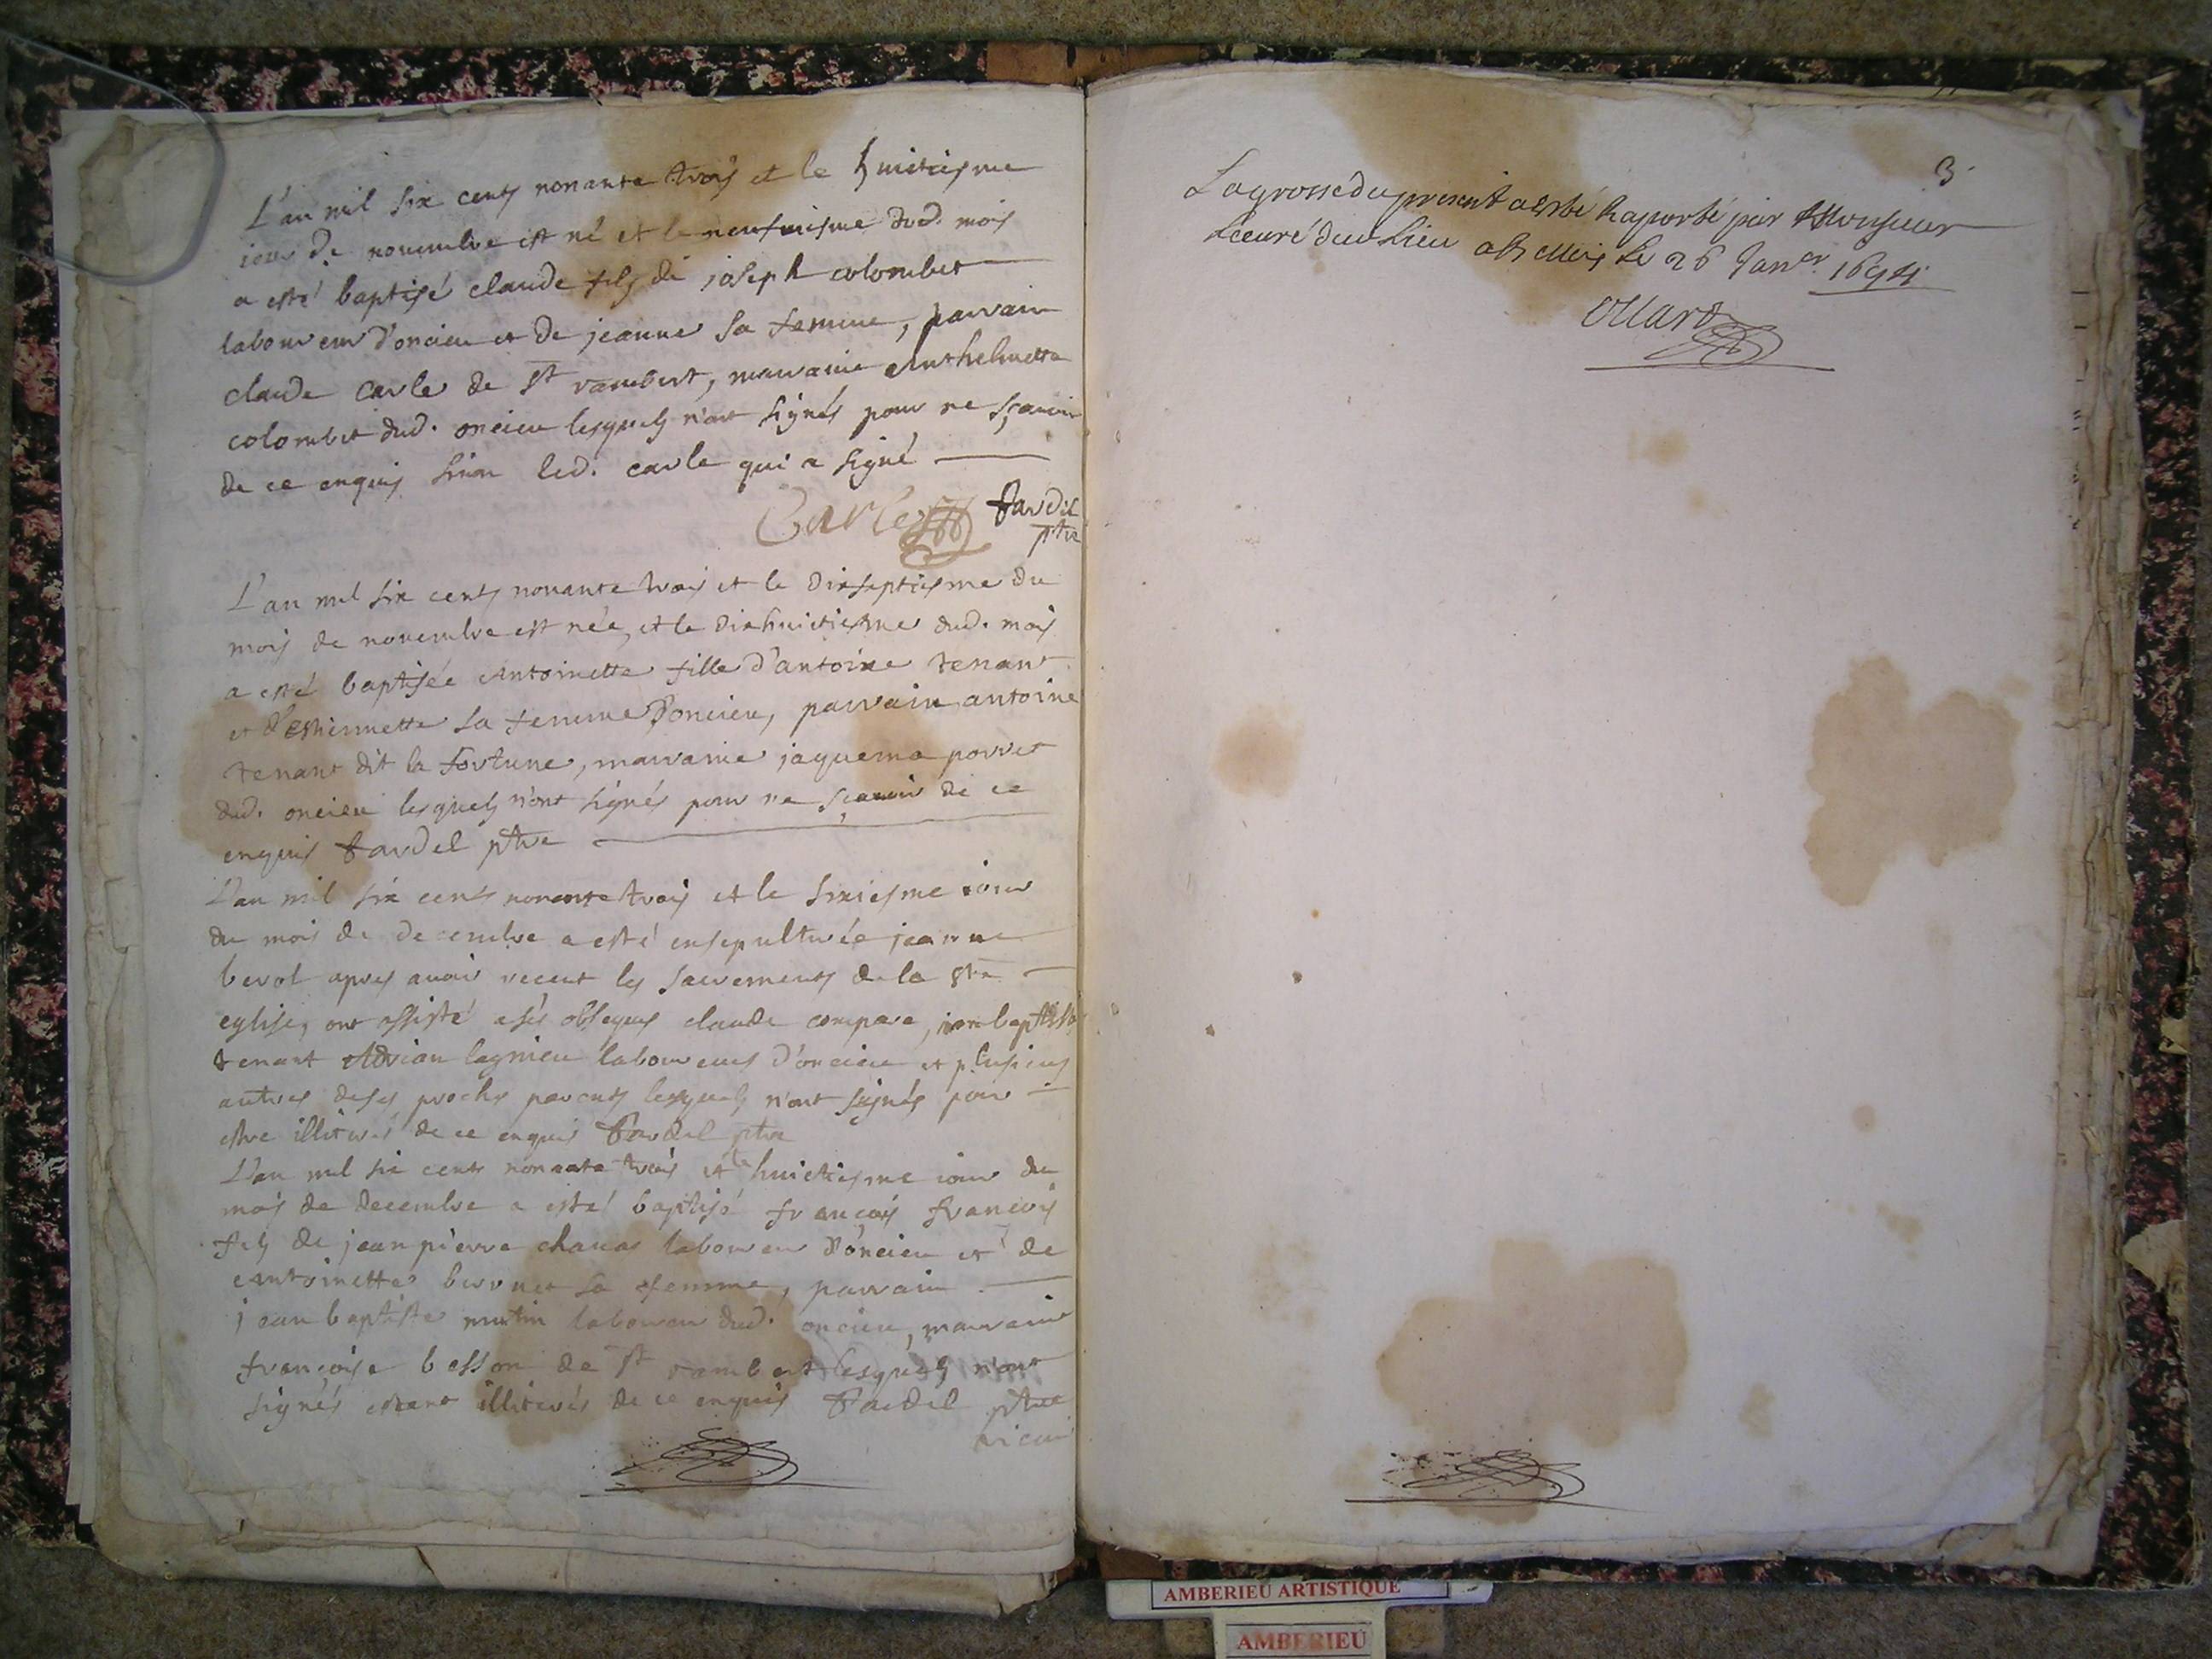 L'an mil six cents nonante trois et le huictiesme
iour de novembre est né et le neufuiesme dud. mois
a esté baptisé claude fils de joseph colombet
laboureur d'oncieu et de jeanne sa femme, parrain
claude carle de St rambert, marraine Anthelmette
colombet dud. oncieu lesquels n'ont signés pour ne sçavoir
de ce enquis sinon led. carle qui a signé
Carle fardel
ptre
L'an mil six cents nonante trois et le dixseptiesme du
mois de novembre est née, et le dixhuictiesme dud. mois
a esté baptisée Antoinette fille d'antoine tenant
et d'Estiennette sa femme d'oncieu, parrain antoine
tenant dit la fortune, marraine jaquema porret
dud. oncieu lesquels n'ont signés pour ne sçavoir de ce
enquis fardel ptre
L'an mil six cents nonante trois et le sixiesme iour
du mois de decembre a esté ensepulturée jeanne
berot apres avoir receut les sacrements de la ste
eglise, ont assisté a ses obseques claude compare, jean baptiste
tenant Adrian lagnieu laboureurs d'oncieu et plusieurs
autres de ses proches parents lesquels n'ont signés pour
estre illiterés de ce enquis fardel ptre
L'an mil six cents nonante trois et le huictiesme iour du
mois de decembre a esté baptisé françois françois
fils de jean pierre chavas laboureur d'oncieu et de
Antoinette berrnet sa femme, parrain
jean baptiste mutin laboureur dud. oncieu, marraine
françoise besson de St rambert lesquels n'ont
signés estant illiterés de ce enquis fardel ptre
vicaire
3
La grosse du present a esté Raporté par Monsieur
Le curé dud Lieu le 26 Janer. 1694
Ollard
AMBERIEU ARTISTIQUE
AMBERIEU